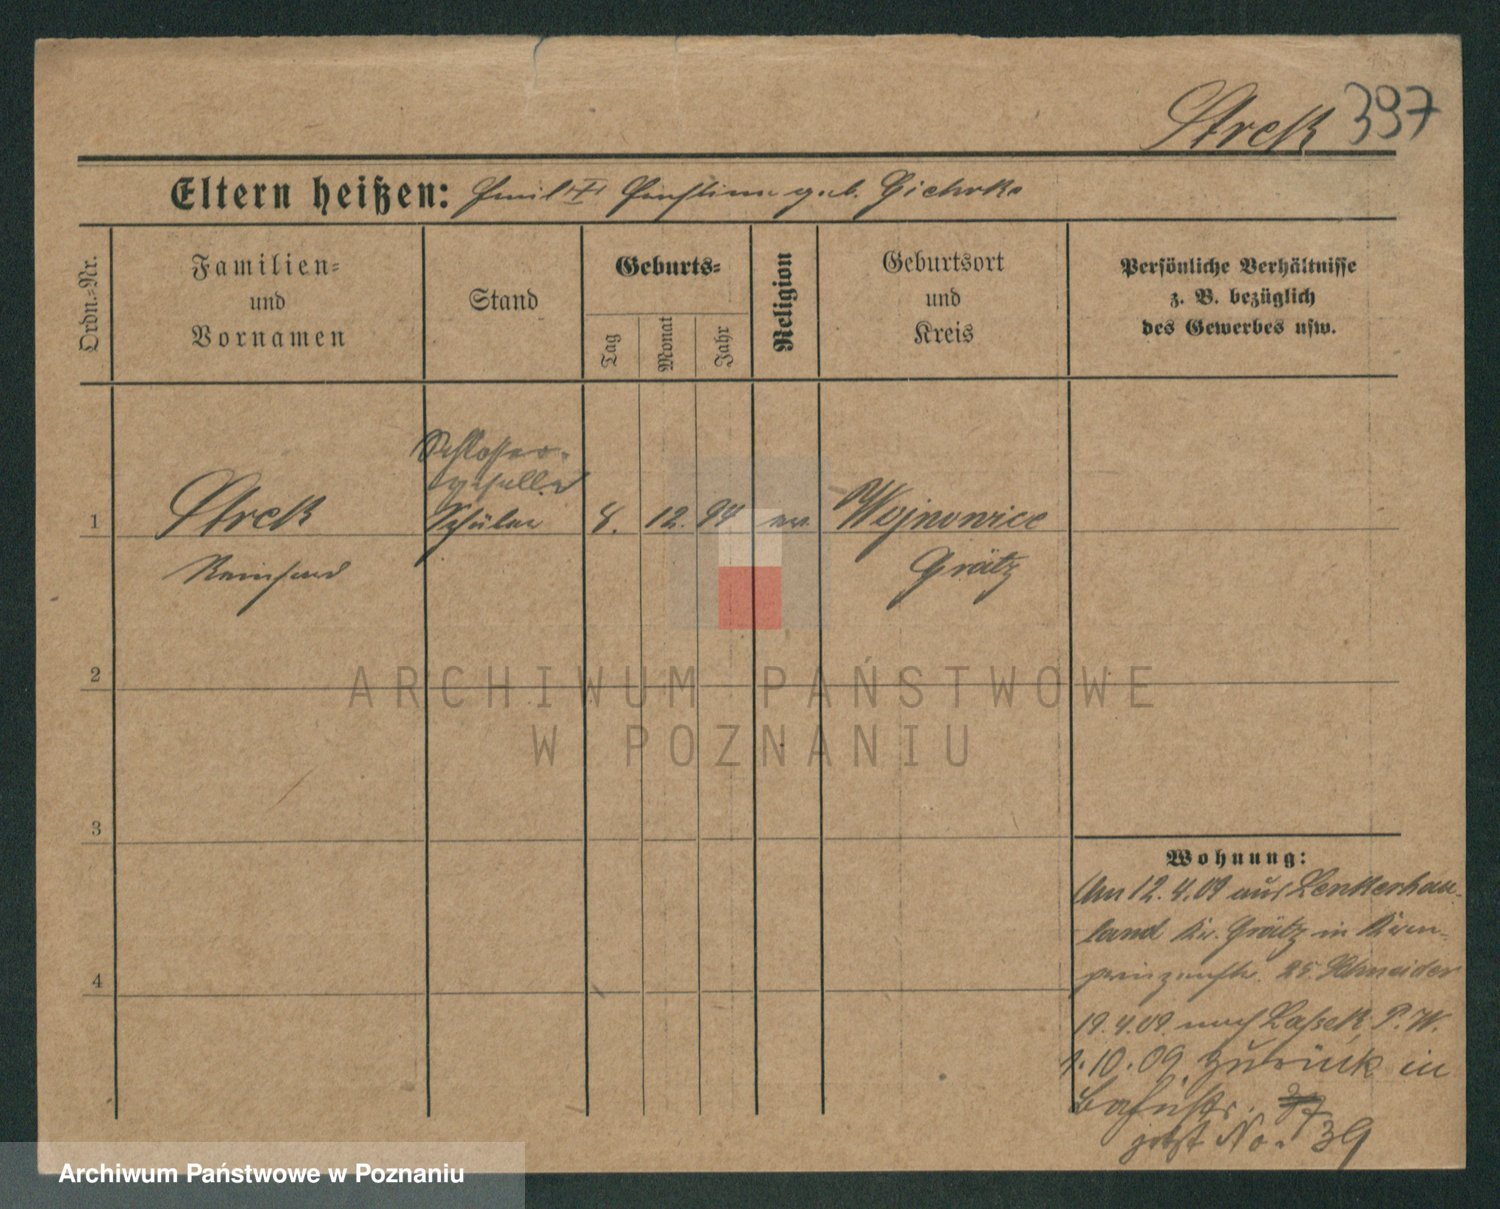 Strek 397
Eltern heißen: Emil geb. Gierke
Ordn.-Nr.
Familien-
und
Vornamen
Stand
Geburts-
Tag
Monat
Jahr
Religion
Geburtsort
und
Kreis
Persönliche Verhältnisse
z. B. bezüglich
des Gewerbes usw.
Schlosser-
geselle
1 Strek Schüler 8. 12. 94 ev. Wojnowice
Reinhard Grätz
2
3
4
Wohnung:
Am 12.4.09 aus
land Kr. Grätz in Kron-
prinzenstr. 25. Schneider
19.4.09 nach Lassek P. W.
1.10.09 zurück in
jetzt No. 39
ARCHIWUM PAŃSTWOWE
W POZNANIU
Archiwum Państwowe w Poznaniu